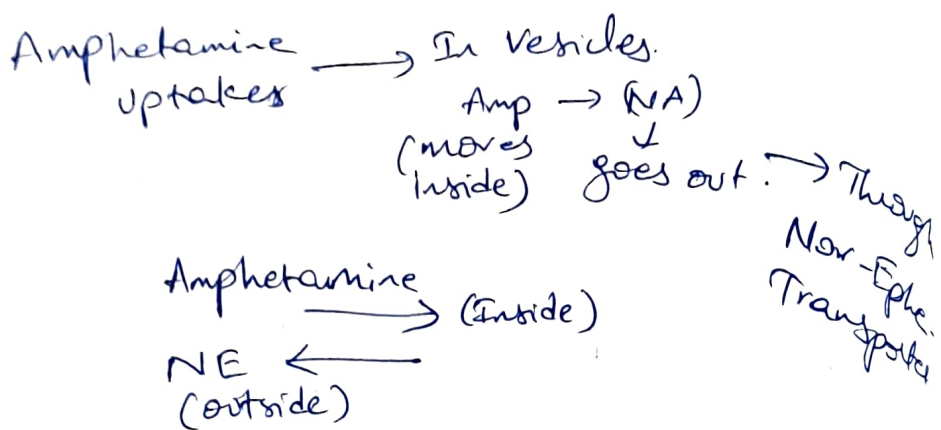 Amphetamine → In Vesicles.
uptakes
Amp → (NA)
(moves ↓
Inside) goes out. → Through
Nor-Ephe.
Transporte
Amphetamine
→ (Inside)
NE ←
(outside)